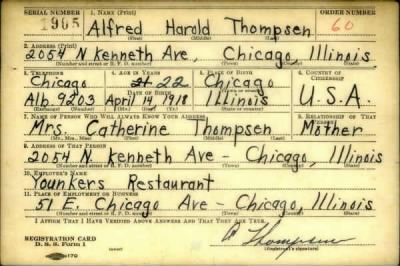 SERIAL NUMBER 1. NAME (Print) ORDER NUMBER
1905 Alfred Harold Thompsen 60
(First) (Middle) (Last)
2. ADDRESS (Print)
2054 N Kenneth Ave, Chicago, Illinois
(Number and street or R. F. D. number) (Town) (County) (State)
3. TELEPHONE 4. AGE IN YEARS 5. PLACE OF BIRTH 6. COUNTRY OF CITIZENSHIP
Chicago 21 22 Chicago
DATE OF BIRTH
Alb. 9203 April 14, 1918 Illinois U.S.A.
7. NAME OF PERSON WHO WILL ALWAYS KNOW YOUR ADDRESS 8. RELATIONSHIP OF THAT PERSON
Mrs. Catherine Thompsen Mother
9. ADDRESS OF THAT PERSON
2054 N. Kenneth Ave - Chicago, Illinois
(Number and street or R. F. D. number) (Town) (County) (State)
10. EMPLOYER'S NAME
Younkers Restaurant
11. PLACE OF EMPLOYMENT OR BUSINESS
51 E. Chicago Ave - Chicago, Illinois
(Number and street or R. F. D. number) (Town) (County) (State)
I AFFIRM THAT I HAVE VERIFIED ABOVE ANSWERS AND THAT THEY ARE TRUE.
REGISTRATION CARD
D. S. S. Form 1
Thompsen
(Registrant's signature)